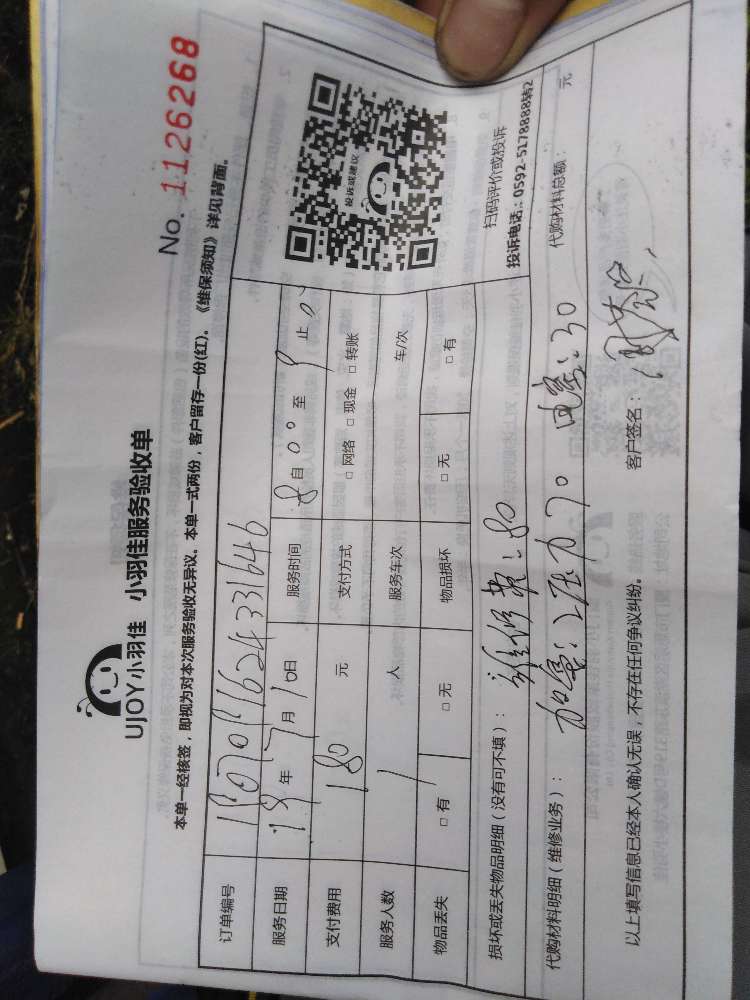 UJOY小羽佳 小羽佳服务验收单
No. 1126268
本单一经核签，即视为对本次服务验收无异议。本单一式两份，客户留存一份(红)。《维保须知》详见背面。
订单编号 1907091624331646
服务日期 19年7月10日 服务时间 8自00至9止0
支付费用 180 元 支付方式 □网络 □现金 □转账
服务人数 1 人 服务车次 车/次
物品丢失 □有 □无 物品损坏 □无 □有
投诉或建议
扫码评价或投诉
投诉电话：0592-5178888转2
损坏或丢失物品明细（没有可不填）： 维修费：80
代购材料明细（维修业务）： 加雪：2压力70 电容：30 代购材料总额： 元
以上填写信息已经本人确认无误，不存在任何争议纠纷。 客户签名：